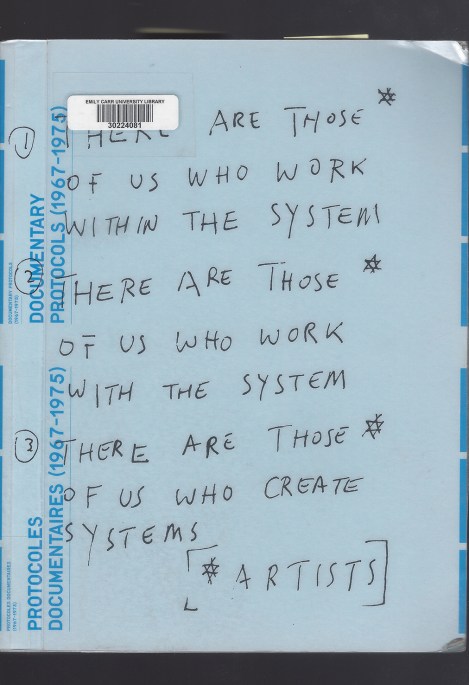 EMILY CARR UNIVERSITY LIBRARY
30224081
① THERE ARE THOSE*
OF US WHO WORK
WITHIN THE SYSTEM
② THERE ARE THOSE*
OF US WHO WORK
WITH THE SYSTEM
③ THERE ARE THOSE*
OF US WHO CREATE
SYSTEMS
[* ARTISTS]
DOCUMENTARY
PROTOCOLS (1967-1975)
PROTOCOLES
DOCUMENTAIRES (1967-1975)
DOCUMENTARY PROTOCOLS
(1967-1975)
PROTOCOLES DOCUMENTAIRES
(1967-1975)